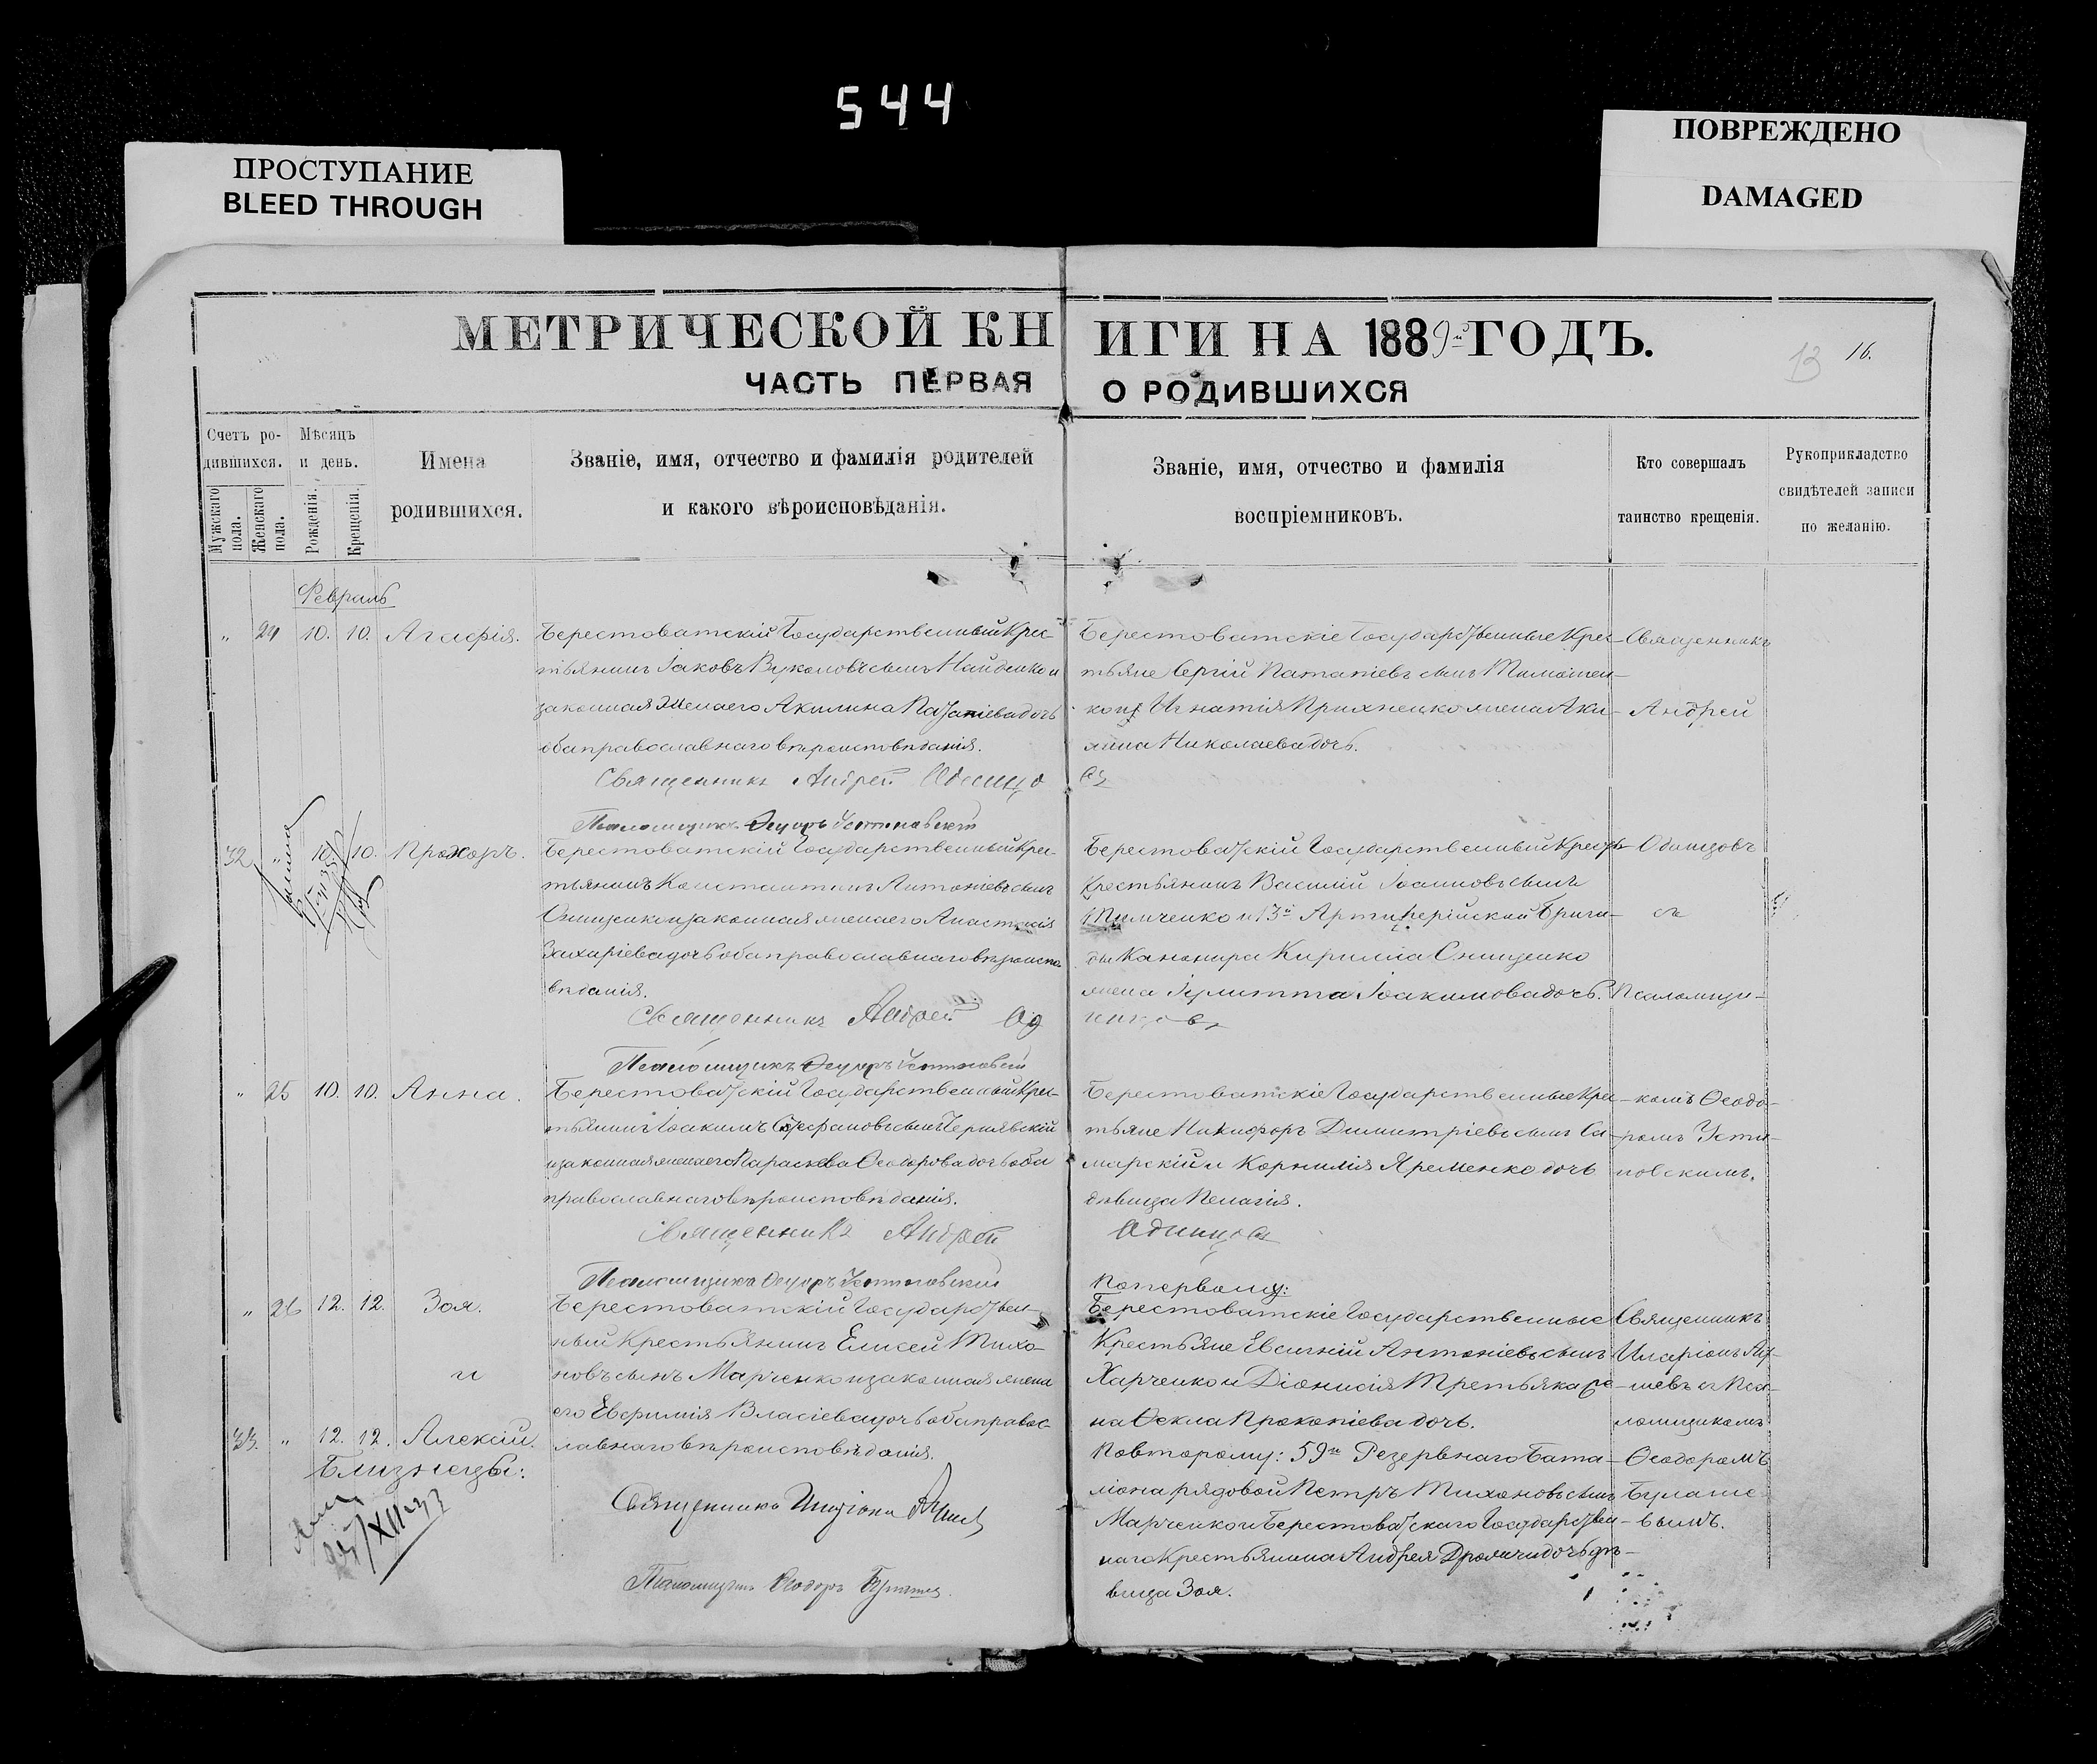 544
ПРОСТУПАНИЕ
BLEED THROUGH
ПОВРЕЖДЕНО
DAMAGED
МЕТРИЧЕСКОЙ КНИГИ НА 1889й ГОДЪ.
13 16.
ЧАСТЬ ПЕРВАЯ О РОДИВШИХСЯ
Счетъ ро-
дившихся.
Мужскаго пола.
Женскаго пола.
Мѣсяцъ
и день.
Рожденія.
Крещенія.
Имена
родившихся.
Званіе, имя, отчество и фамилія родителей
и какого вѣроисповѣданія.
Званіе, имя, отчество и фамилія
воспріемниковъ.
Кто совершалъ
таинство крещенія.
Рукоприкладство
свидѣтелей записи
по желанію.
Февраль
" 24 10. 10. Агафія.
Берестоватскій Государственный Крес-
тьянинъ Іаковъ Вуколовъ сынъ Найденко и
законная жена его Акилина Патапіева дочь
оба православнаго вѣроисповѣданія.
Священникъ Андрей Одинцо
Псаломщикъ Ѳеодоръ Устиновскій
Берестоватскіе Государственные Крес-
тьяне Сергій Патапіевъ сынъ Тимошен-
ко и Игнатія жена Аки-
лина Николаева дочь.
въ
Священникъ
Андрей
32 " 10. 10. Прохоръ.
Берестоватскій Государственный Крес-
тьянинъ Константинъ Антоніевъ сынъ
Онищенко и законная жена его Анастасія
Захаріева дочь оба православнаго вѣроиспо-
вѣданія.
Священникъ Андрей Од
Псаломщикъ Ѳеодоръ Устиновскій
Берестоватскій Государственный
Крестьянинъ Василій Іоанновъ сынъ
и 13й Артиллерійской Брига-
ды Канонира Кирилла Онищенко
жена Іулитта Іоакимова дочь.
инцовъ
Одинцовъ
съ
Псаломщи-
" 25 10. 10. Анна.
Берестоватскій Государственный Крес-
тьянинъ Іоакимъ Стефановъ сынъ Чернявскій
и законная жена его Параскева Ѳеодорова дочь оба
православнаго вѣроисповѣданія.
Священникъ Андрей
Псаломщикъ Ѳеодоръ Устиновскій
Берестоватскіе Государственные Крес-
тьяне Никифоръ Димитріевъ сынъ Са-
марскій и Корнилія Яременко дочь
дѣвица Пелагія.
Одинцовъ
комъ Ѳеодо-
ромъ Усти-
новскимъ.
" 26 12. 12. Зоя.
и
33. " 12. 12. Алексій.
Близнецы:
Берестоватскій Государствен-
ный Крестьянинъ Елисей Тихо-
новъ сынъ Марченко и законная жена
его Евфимія Власіева дочь оба правос-
лавнаго вѣроисповѣданія.
Псаломщикъ Ѳеодоръ
По первому:
Берестоватскіе Государственные
Крестьяне Евгеній Антоніевъ сынъ
Харченко и Діонисія Третьяка же-
на Ѳекла Прокопіева дочь.
По второму: 59го Резервнаго Бата-
ліона рядовой Петръ Тихоновъ сынъ
Марченко и Берестоватскаго Государствен-
наго Крестьянина Андрея дочь дѣ-
вица Зоя.
Священникъ
съ Пса-
ломщикомъ
Ѳеодоромъ
Булаше-
вымъ.